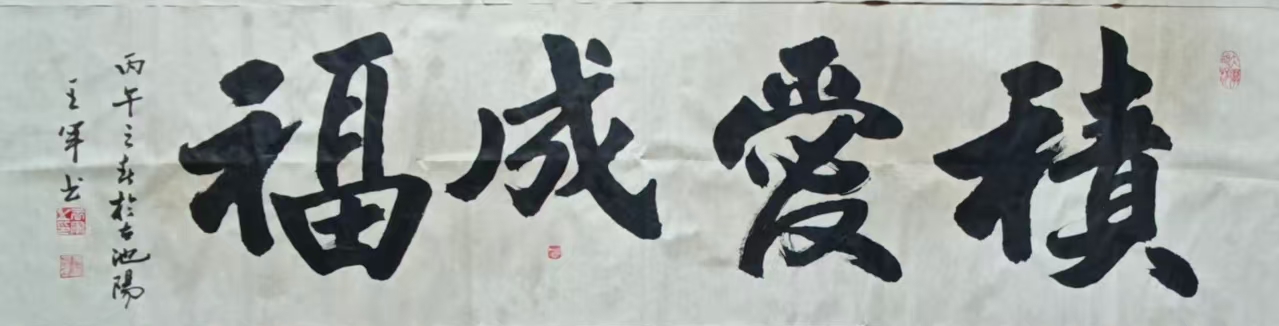 積愛成福
丙午之春於古池陽
王軍书